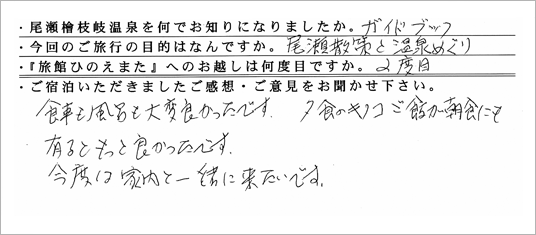 ・尾瀬檜枝岐温泉を何でお知りになりましたか。ガイドブック
・今回のご旅行の目的はなんですか。尾瀬散策と温泉めぐり
・『旅館ひのえまた』へのお越しは何度目ですか。2度目
・ご宿泊いただきましたご感想・ご意見をお聞かせ下さい。
食事も風呂も大変良かったです。夕食のキノコご飯が朝食にも
有るともっと良かったです。
今度は家内と一緒に来たいです。